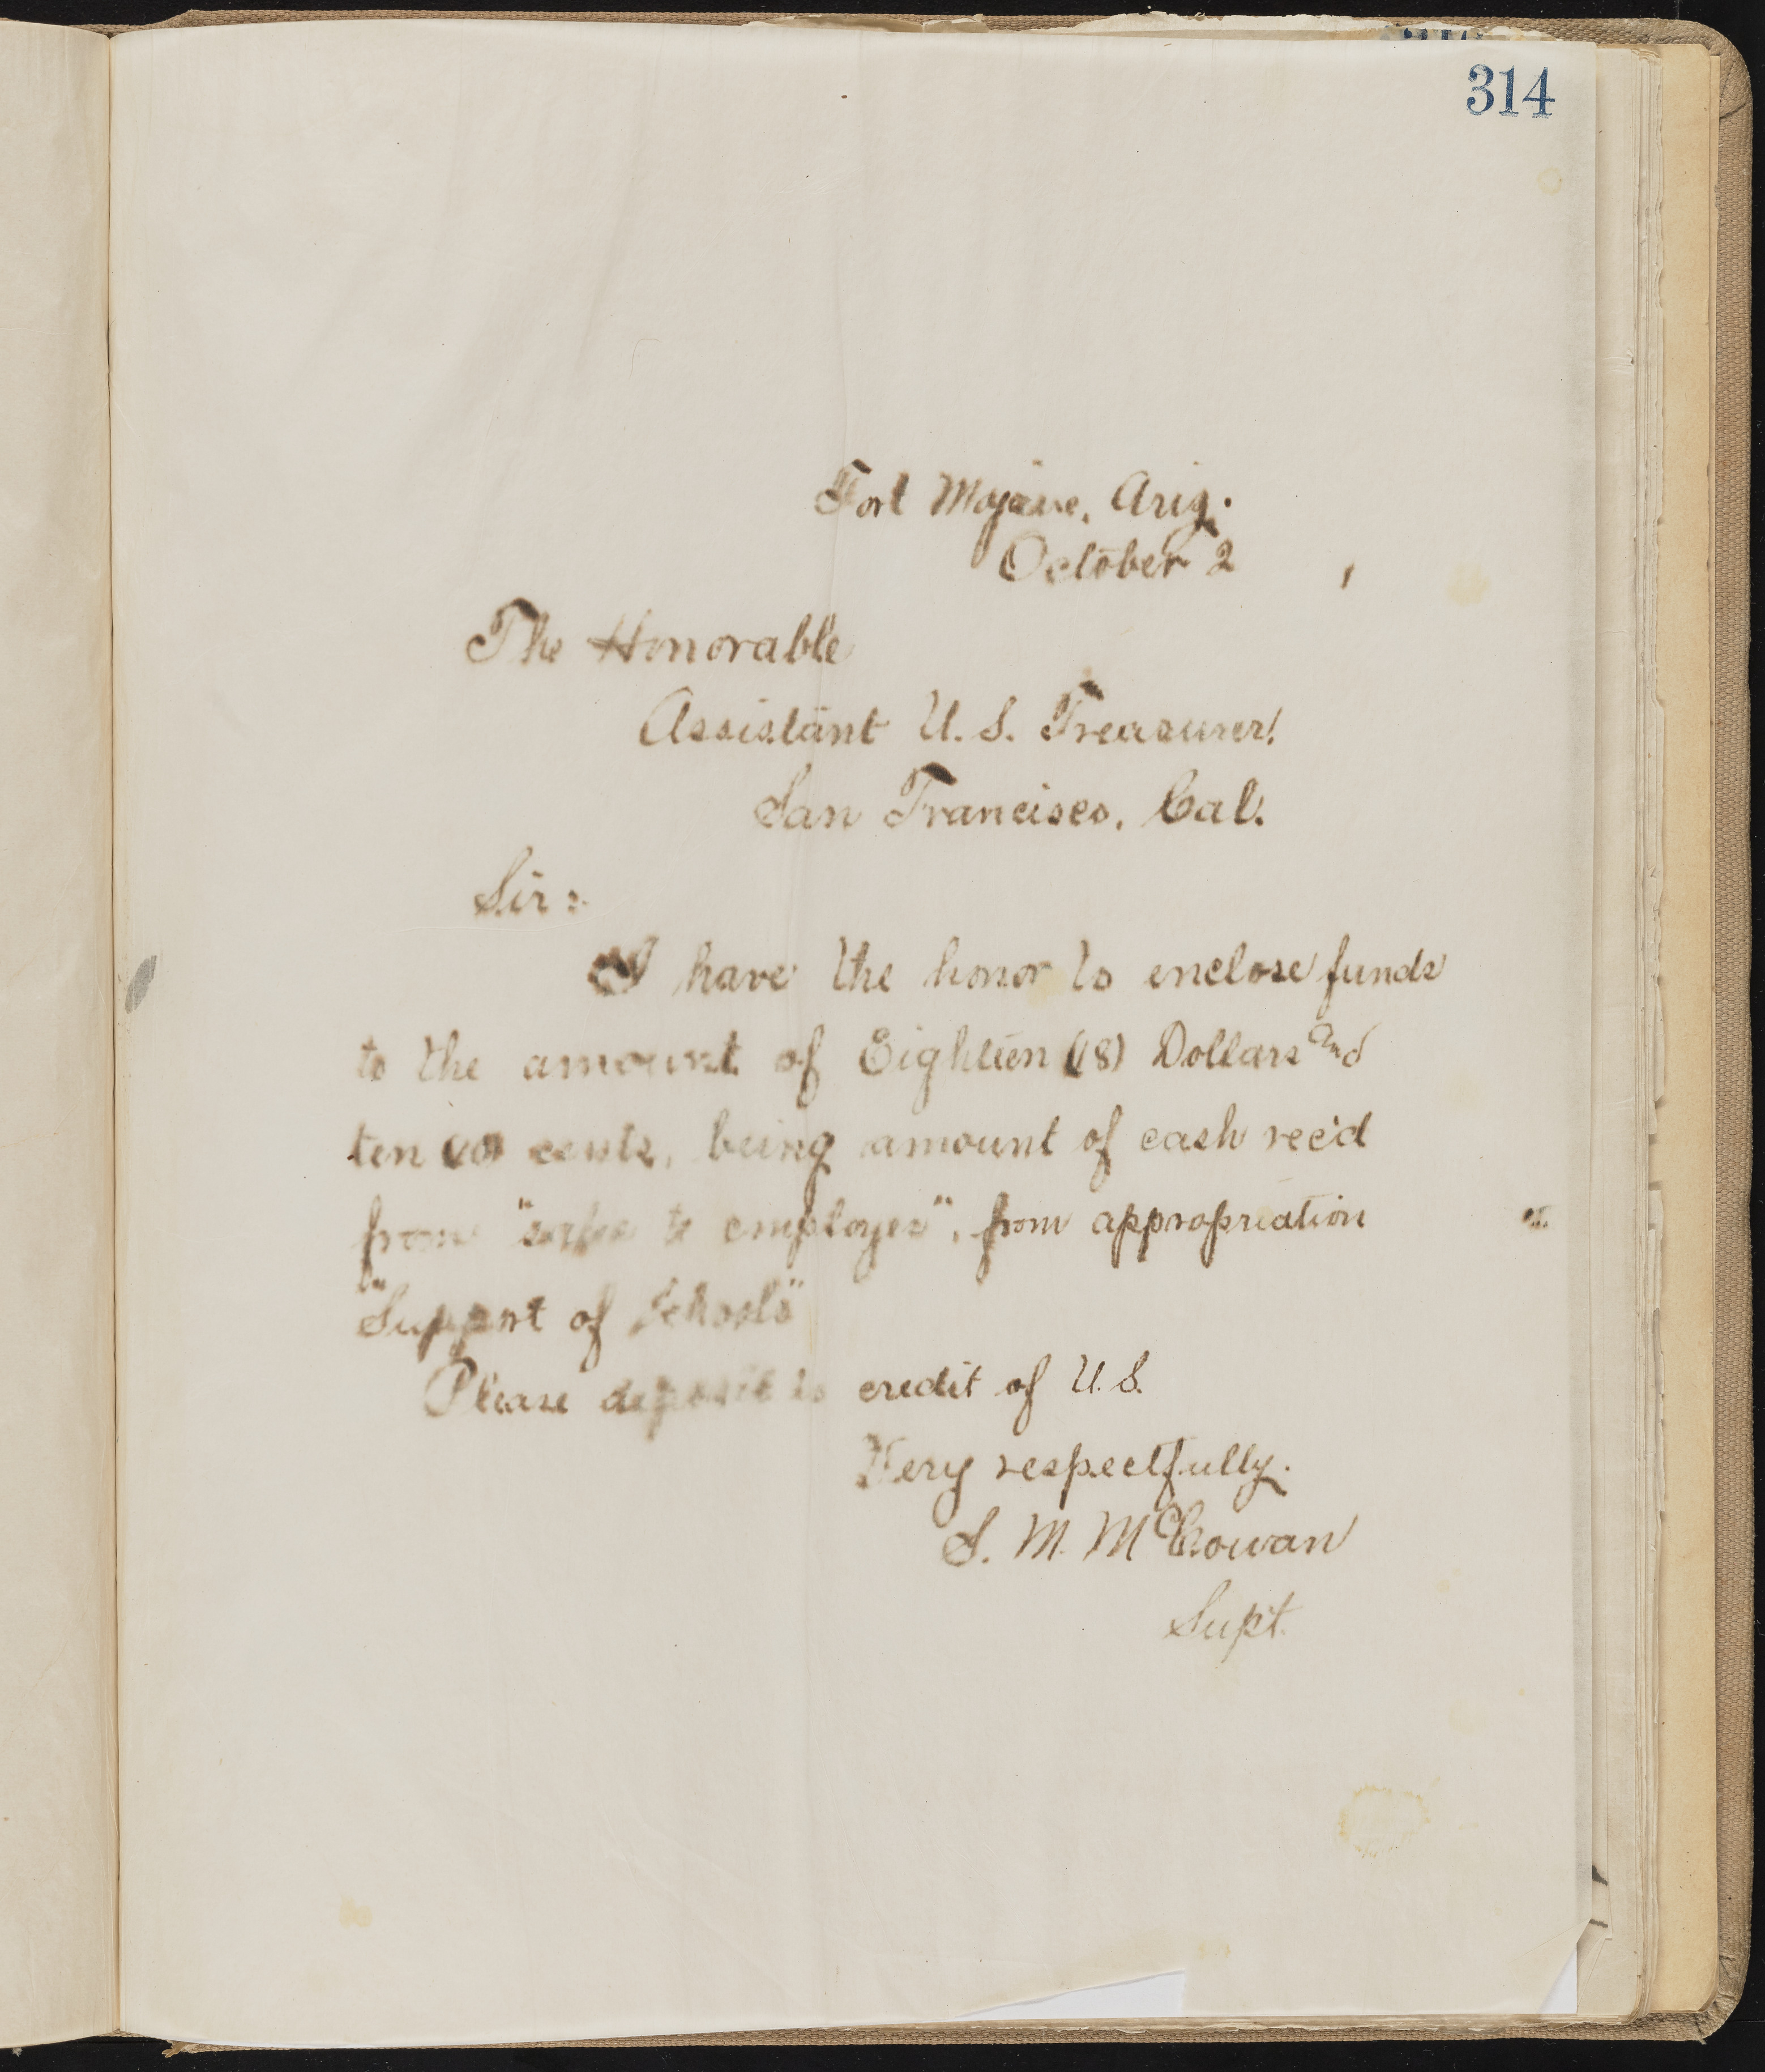 314
Fort Mojave, Ariz.
October 2
The Honorable
Assistant U. S. Treasurer,
San Francisco, Cal.
Sir:
I have the honor to enclose funds
to the amount of Eighteen (18) Dollars and
ten (10) cents, being amount of cash rec'd
from "sales to employes", from appropriation
"Support of Schools"
Please deposit to credit of U. S.
Very respectfully.
S. M. McCowan
Supt.